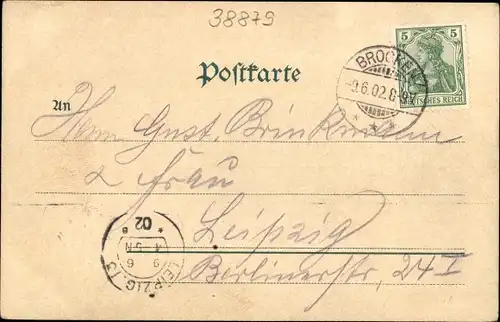 38879
5 5
DEUTSCHES REICH
BROCKEN
9.6.02.8-9V
Postkarte
An
Herrn Gust. Brinkmann
& Frau
Leipzig
Berlinerstr. 24 I
LEIPZIG 13
9 6
4-5 N
* 02 B